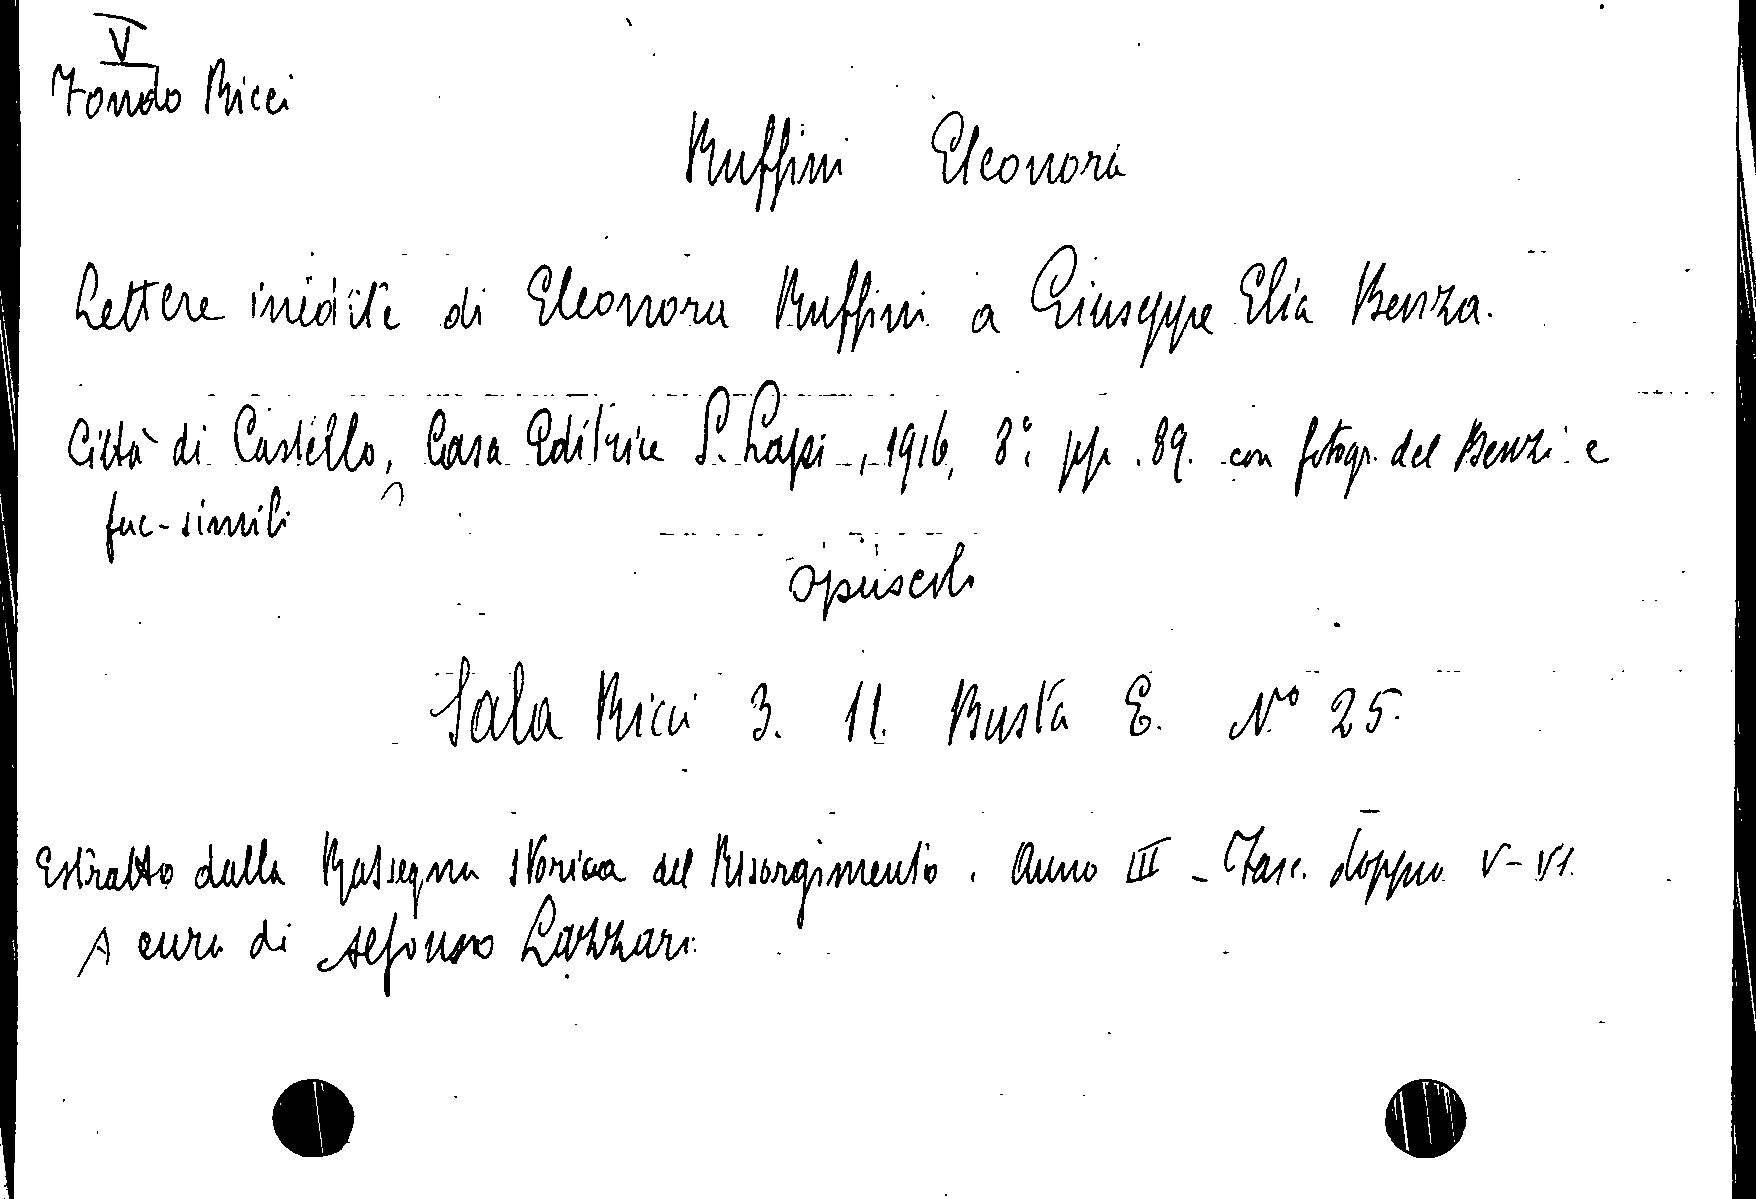 V
Fondo Ricci
Ruffini Eleonora
Lettere inedite di Eleonora Ruffini a Giuseppe Elia Benza.
Città di Castello, Casa Editrice S. Lapi, 1916, 8° pp. 89. con fotogr. del Benzi e
fac-simili
opuscoli
Sala Ricci 3. 11. Busta E. N° 25.
Estratto dalla Rassegna storica del Risorgimento. Anno III - Fasc. doppio V-VI.
A cura di Alfonso Lazzari